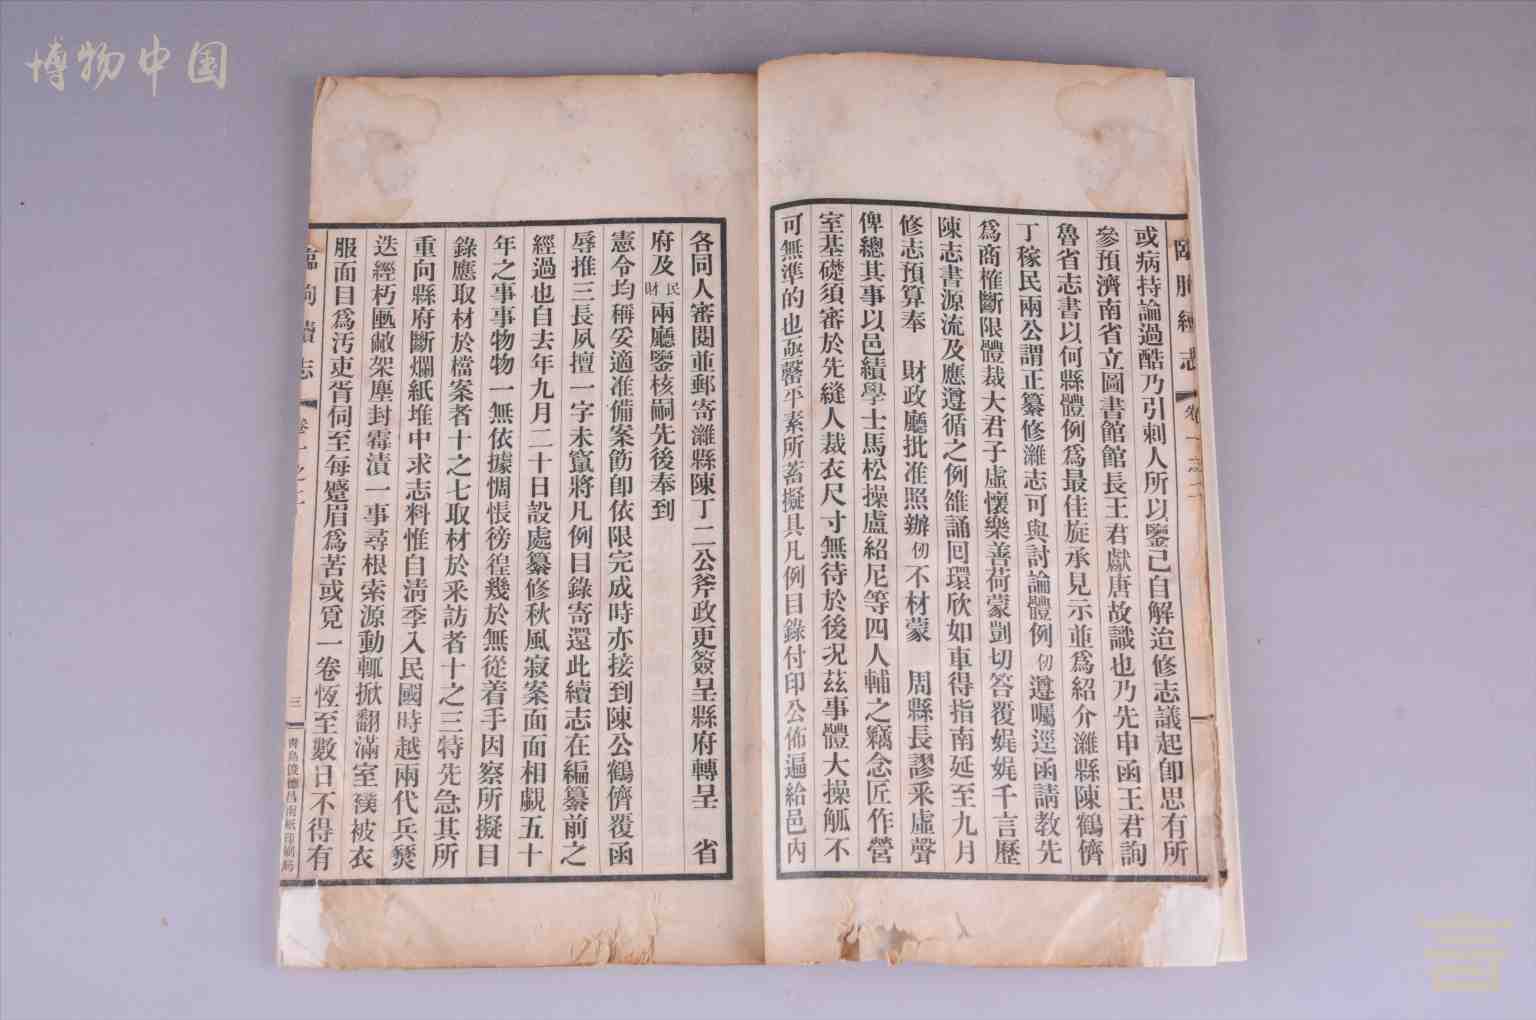 博物中国
臨朐續志
卷一之二
或病持論過酷乃引刺人所以鑒己自解迨修志議起卽思有所
參預濟南省立圖書館館長王君獻唐故識也乃先申函王君詢
魯省志書以何縣體例爲最佳旋承見示並爲紹介濰縣陳鶴儕
丁稼民兩公謂正纂修濰志可與討論體例仞遵囑逕函請教先
爲商榷斷限體裁大君子虛懷樂善荷蒙剴切答覆娓娓千言歷
陳志書源流及應遵循之例雒誦回環欣如車得指南延至九月
修志預算奉 財政廳批准照辦仞不材蒙 周縣長謬采虛聲
俾總其事以邑績學士馬松操盧紹尼等四人輔之竊念匠作營
室基礎須審於先縫人裁衣尺寸無待於後況茲事體大操觚不
可無準的也亟罄平素所蓄擬具凡例目錄付印公佈遍給邑內
各同人審閱並郵寄濰縣陳丁二公斧政更簽呈縣府轉呈 省
府及民財兩廳鑒核嗣先後奉到
憲令均稱妥適准備案飭卽依限完成時亦接到陳公鶴儕覆函
辱推三長夙擅一字未竄將凡例目錄寄還此續志在編纂前之
經過也自去年九月二十日設處纂修秋風寂案面面相覷五十
年之事事物物一無依據惆悵徬徨幾於無從着手因察所擬目
錄應取材於檔案者十之七取材於采訪者十之三特先急其所
重向縣府斷爛紙堆中求志料惟自淸季入民國時越兩代兵燹
迭經朽匭敝架塵封霉漬一事尋根索源動輒掀翻滿室襆被衣
服面目爲汚吏胥伺至每蹙眉爲苦或覓一卷恆至數日不得有
臨朐續志
卷一之二
三
靑島俊德昌南紙印刷局